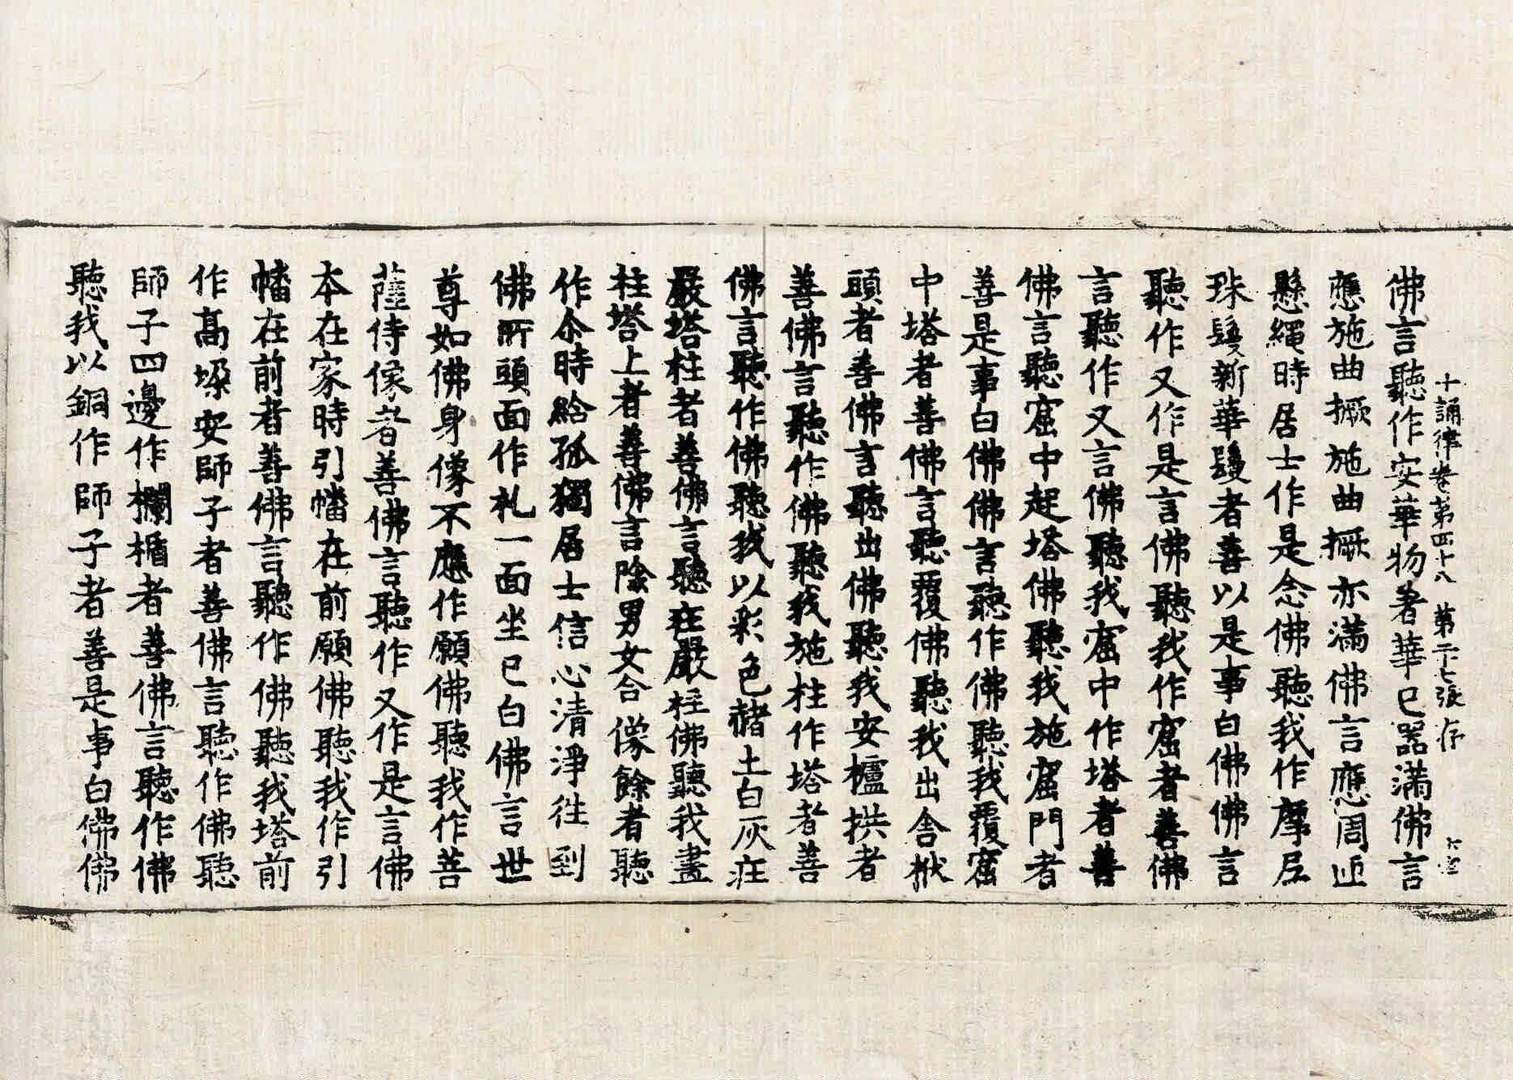 佛言聽作安華物著華已器滿佛言
十誦律卷第四十八　第二十七張　存
應施曲撅施曲撅亦滿佛言應周迊
懸繩時居士作是念佛聽我作摩尼
珠鬘新華鬘者善以是事白佛佛言
聽作又作是言佛聽我作窟者善佛
言聽作又言佛聽我窟中作塔者善
佛言聽窟中起塔佛聽我施窟門者
善是事白佛佛言聽作佛聽我覆窟
中塔者善佛言聽覆佛聽我出舍栿
頭者善佛言聽出佛聽我安櫨拱者
善佛言聽作佛聽我施柱作塔者善
佛言聽作佛聽我以彩色赭土白灰疘
嚴塔柱者善佛言聽疘嚴柱佛聽我畫
柱塔上者善佛言除男女合像餘者聽
作尒時給孤獨居士信心清淨往到
佛所頭面作礼一面坐已白佛言世
尊如佛身像不應作願佛聽我作菩
薩侍像者善佛言聽作又作是言佛
本在家時引幡在前願佛聽我作引
幡在前者善佛言聽作佛聽我塔前
作高垜安師子者善佛言聽作佛聽
師子四邊作欄楯者善佛言聽作佛
聽我以銅作師子者善是事白佛佛